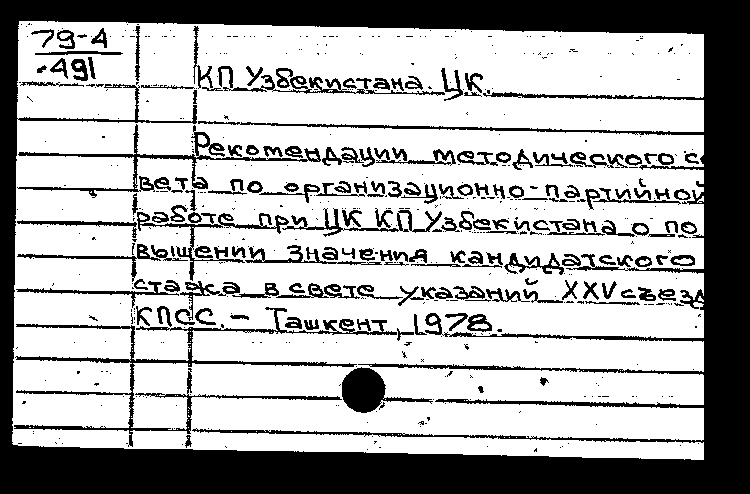 79-4
491
КП Узбекистана. ЦК.
Рекомендации методического со
вета по организационно-партийной
работе при ЦК КП Узбекистана о по
вышении значения кандидатского
стажа в свете указаний XXV съезд
КПСС. - Ташкент, 1978.